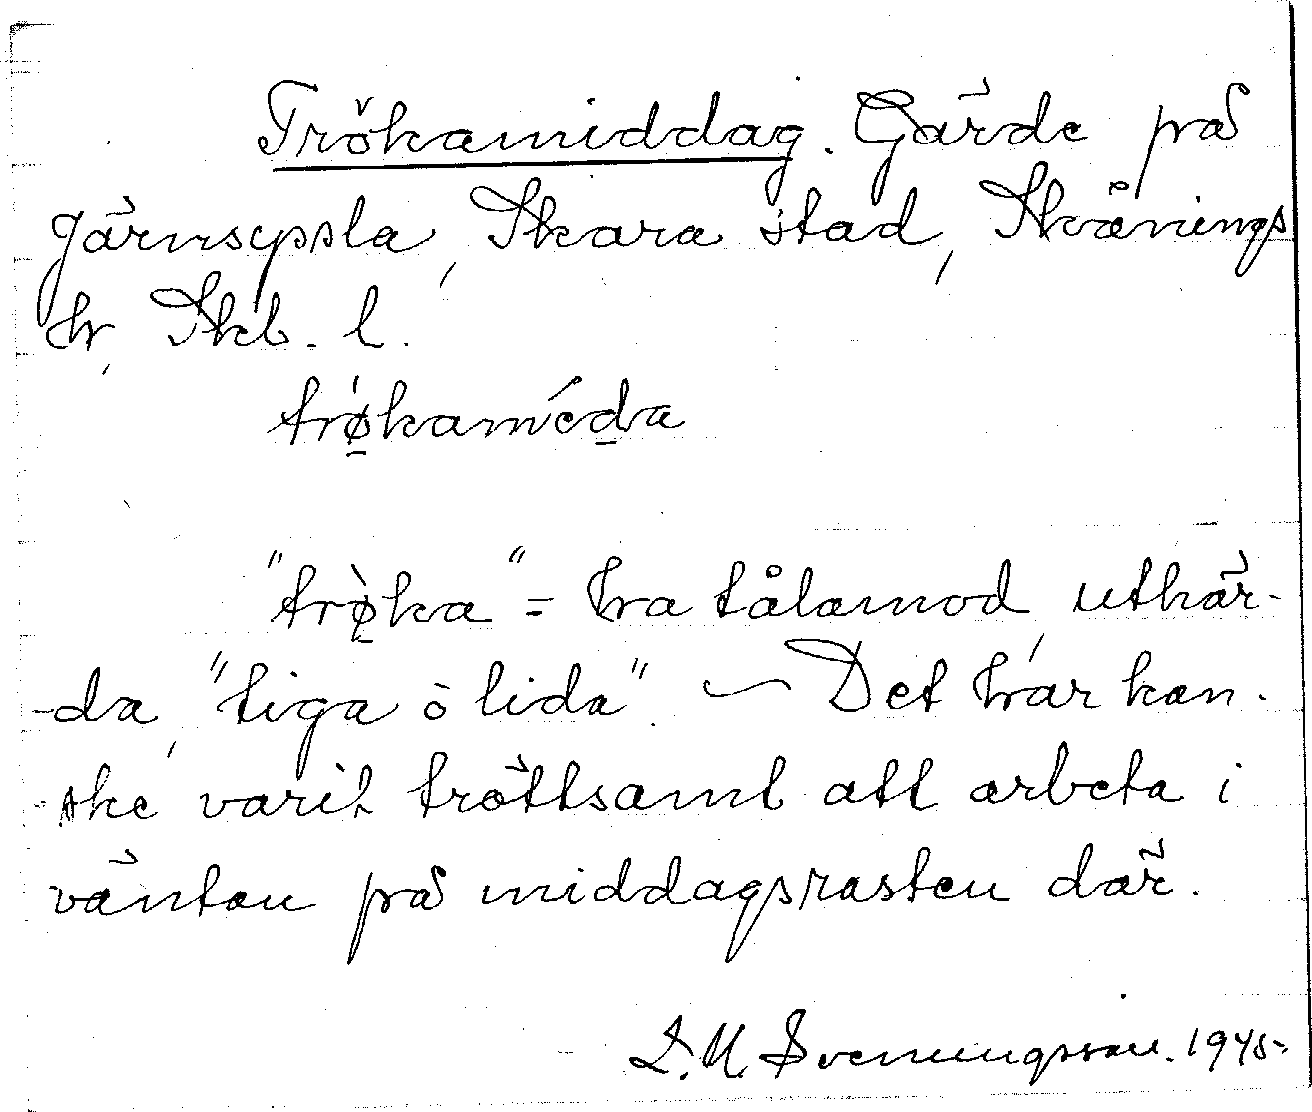 Trökamiddag. Gärde på
Järnsyssla, Skara stad, Skånings
hr, Skb. l.
trǿ̱kamɩ́da
"trø̱̀ka" = ha tålamod, uthär-
-da, "tiga ò lida". — Det har kan-
-ske varit tröttsamt att arbeta i
väntan på middagsrasten där.
Svenungsson. 1945.